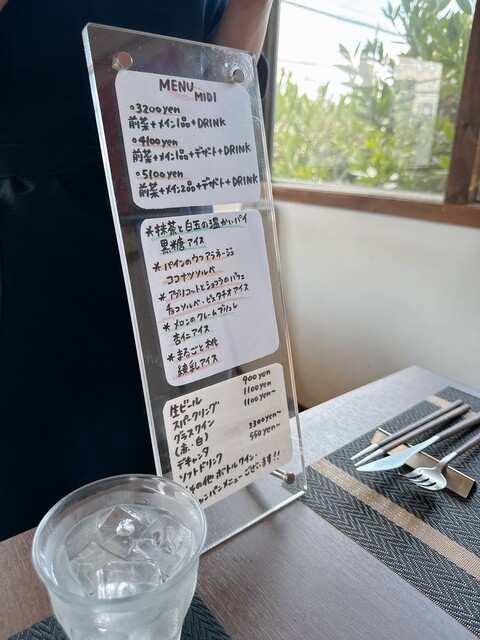 MENU
MIDI
○3200yen
前菜+メイン1品+DRINK
○4100yen
前菜+メイン1品+デザート+DRINK
○5100yen
前菜+メイン2品+デザート+DRINK
*抹茶と白玉の温かいパイ
黒糖アイス
*パインのウフアラネージュ
ココナツソルベ
*アプリコットとショコラのパフェ
チョコソルベ・ピスタチオアイス
*メロンのクレームブリュレ
杏仁アイス
*まるごと桃
練乳アイス
生ビール 900yen
スパークリング 1100yen
グラスワイン 1100yen~
(赤・白)
デキャンタ 3300yen~
ソフトドリンク 550yen~
その他ボトルワイン・
シャンパンメニューございます!!